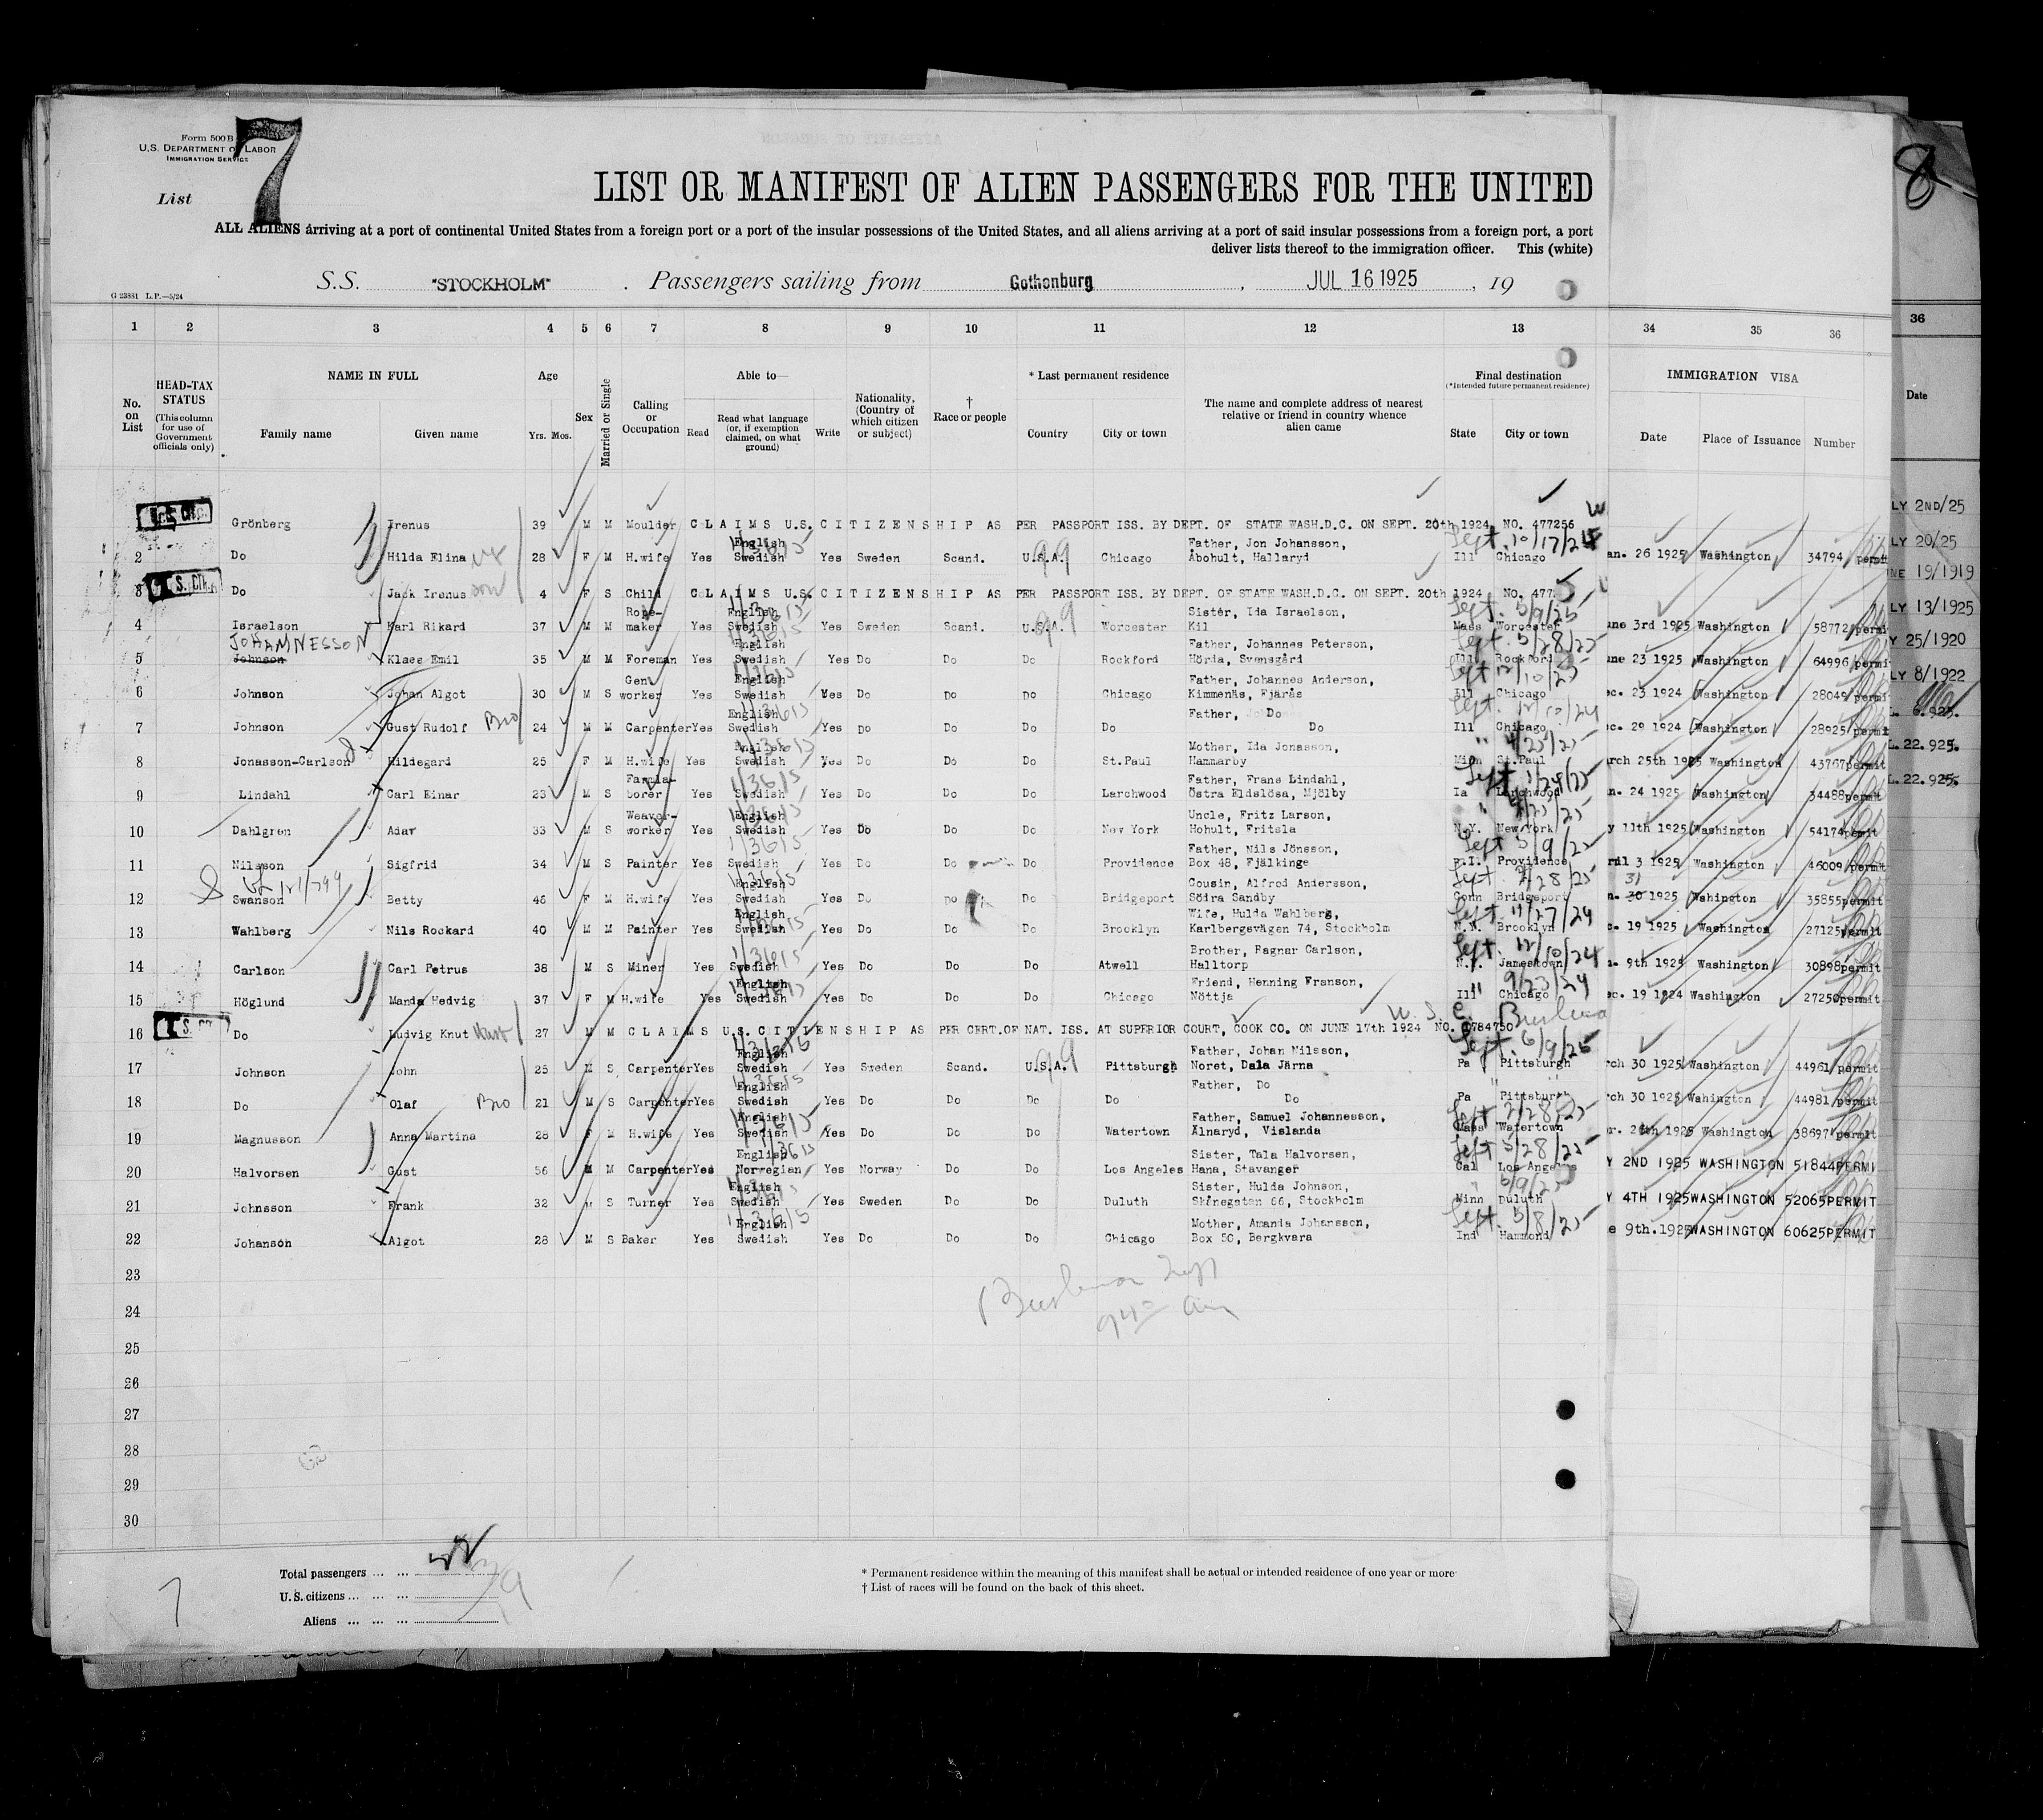 Form 500 B
U.S. DEPARTMENT OF LABOR
IMMIGRATION SERVICE
7
8
List
LIST OR MANIFEST OF ALIEN PASSENGERS FOR THE UNITED
ALL ALIENS arriving at a port of continental United States from a foreign port or a port of the insular possessions of the United States, and all aliens arriving at a port of said insular possessions from a foreign port, a port
deliver lists thereof to the immigration officer. This (white)
S.S. "STOCKHOLM" . Passengers sailing from Gothenburg , JUL 16 1925 , 19
G 23881 L.P.—5/24
1 2 3 4 5 6 7 8 9 10 11 12 13 34 35 36 36
No. on List
HEAD-TAX STATUS (This column for use of Government officials only)
NAME IN FULL
Family name Given name
Age
Yrs. Mos.
Sex
Married or Single
Calling or Occupation
Able to—
Read Read what language (or, if exemption claimed, on what ground) Write
Nationality, (Country of which citizen or subject)
† Race or people
* Last permanent residence
Country City or town
The name and complete address of nearest relative or friend in country whence alien came
Final destination
(*Intended future permanent residence)
State City or town
IMMIGRATION VISA
Date Place of Issuance Number
Date
Grönberg Irenus 39 M M Moulder CLAIMS U.S. CITIZENSHIP AS PER PASSPORT ISS. BY DEPT. OF STATE WASH.D.C. ON SEPT. 20th 1924 NO. 477256
LY 2ND/25
English Father, Jon Johansson, Sept. 10/17/24
2 Do Hilda Elina 28 F M H.wife Yes Swedish Yes Sweden Scand. U.S.A. Chicago Åbohult, Hallaryd Ill Chicago an. 26 1925 Washington 34794 permit
LY 20/25
3 Do Jack Irenus son 4 F S Child CLAIMS U.S. CITIZENSHIP AS PER PASSPORT ISS. BY DEPT. OF STATE WASH.D.C. ON SEPT. 20th 1924 NO. 477
NE 19/1919
Rope- English Sister, Ida Israelson, Sept. 5/9/25
4 Israelson Karl Rikard 37 M M maker Yes Swedish Yes Sweden Scand. U.S.A. Worcester Kil Mass Worcester une 3rd 1925 Washington 58772 permi
LY 13/1925
JOHAMNESSON English Father, Johannes Peterson, Sept. 5/28/25
5 Johnson Klaes Emil 35 M M Foreman Yes Swedish Yes Do Do Do Rockford Hörda, Svensgård Ill Rockford une 23 1925 Washington 64996 permi
Y 25/1920
Gen. English Father, Johannes Anderson,
6 Johnson Johan Algot 30 M S worker Yes Swedish Yes Do Do Do Chicago Kimmenäs, Fjärås Ill Chicago ec. 23 1924 Washington 28049 permi
LY 8/1922
English Father, Do Sept. 12/10/24
7 Johnson Gust Rudolf Bro 24 M M Carpenter Yes Swedish Yes Do Do Do Do Do Ill Chicago ec. 29 1924 Washington 28925 permit
L. 6.925.
English Mother, Ida Jonasson,
8 Jonasson-Carlson Hildegard 25 F M H.wife Yes Swedish Yes Do Do Do St.Paul Hammarby Minn St.Paul arch 25th 1925 Washington 43767 permit
L.22.925.
Farmla- Father, Frans Lindahl,
9 Lindahl Carl Einar 23 M S borer Yes Swedish Yes Do Do Do Larchwood Östra Eldslösa, Mjölby Ia Larchwood n. 24 1925 Washington 34488 permit
L.22.925.
Weaver- English Uncle, Fritz Larson,
10 Dahlgren Adar 33 M S worker Yes Swedish Yes Do Do Do New York Hohult, Fritsla N.Y. New York y 11th 1925 Washington 54174 permit
Father, Nils Jönsson, Sept 5/9/25
11 Nilsson Sigfrid 34 M S Painter Yes Swedish Yes Do Do Do Providence Box 48, Fjälkinge R.I. Providence ril 3 1925 Washington 46009 permit
English Cousin, Alfred Andersson,
12 Swanson Betty 46 F M H.wife Yes Swedish Yes Do Do Do Bridgeport Södra Sandby Conn Bridgeport n. 30 31 1925 Washington 35855 permit
English Wife, Hulda Wahlberg, Sept. 11/27/24
13 Wahlberg Nils Rockard 40 M M Painter Yes Swedish Yes Do Do Do Brooklyn Karlbergsvägen 74, Stockholm N.Y. Brooklyn c. 19 1925 Washington 27125 permit
Brother, Ragnar Carlson, Sept. 12/10/24
14 Carlson Carl Petrus 38 M S Miner Yes Swedish Yes Do Do Do Atwell Halltorp N.Y. Jamestown n. 9th 1925 Washington 30898 permit
English Friend, Henning Franson, 9/23/24
15 Höglund Manda Hedvig 37 F M H.wife Yes Swedish Yes Do Do Do Chicago Nöttja Ill Chicago ec. 19 1924 Washington 27250 permit
16 Do Ludvig Knut 27 M M CLAIMS U.S. CITIENSHIP AS PER CERT.OF NAT. ISS. AT SUPERIOR COURT, COOK CO. ON JUNE 17th 1924 NO. 1784750
English Father, Johan Nilsson, Sept. 6/9/25
17 Johnson John 25 M S Carpenter Yes Swedish Yes Sweden Scand. U.S.A. Pittsburgh Noret, Dala Järna Pa Pittsburgh rch 30 1925 Washington 44961 permit
English Father, Do
18 Do Olaf Bro 21 M S Carpenter Yes Swedish Yes Do Do Do Do Do Pa Pittsburgh rch 30 1925 Wahington 44981 permit
English Father, Samuel Johannesson, Sept 2/28/25
19 Magnusson Anna Martina 28 F M H.wife Yes Swedish Yes Do Do Do Watertown Älnaryd, Vislanda Mass Watertown Washington 38697 permit
English Sister, Tala Halvorsen, Sept 5/28/25
20 Halvorsen Gust 56 M M Carpenter Yes Norwegian Yes Norway Do Do Los Angeles Hana, Stavanger Cal Los Angeles Y 2ND 1925 WASHINGTON 51844 PERMI
English Sister, Hulda Johnson, 5/9/25
21 Johnsson Frank 32 M S Turner Yes Swedish Yes Sweden Do Do Duluth Skånegatan 66, Stockholm Minn Duluth Y 4TH 1925 WASHINGTON 52065 PERMIT
English Mother, Amanda Johansson, Sept. 5/8/25
22 Johanson Algot 28 M S Baker Yes Swedish Yes Do Do Do Chicago Box 50, Bergkvara Ind Hammond e 9th.1925 WASHINGTON 60625 PERMIT
23
24
25
26
27
28
29
30
Total passengers ... ...
U.S. citizens ... ... ...
Aliens ... ... ...
7
* Permanent residence within the meaning of this manifest shall be actual or intended residence of one year or more
† List of races will be found on the back of this sheet.